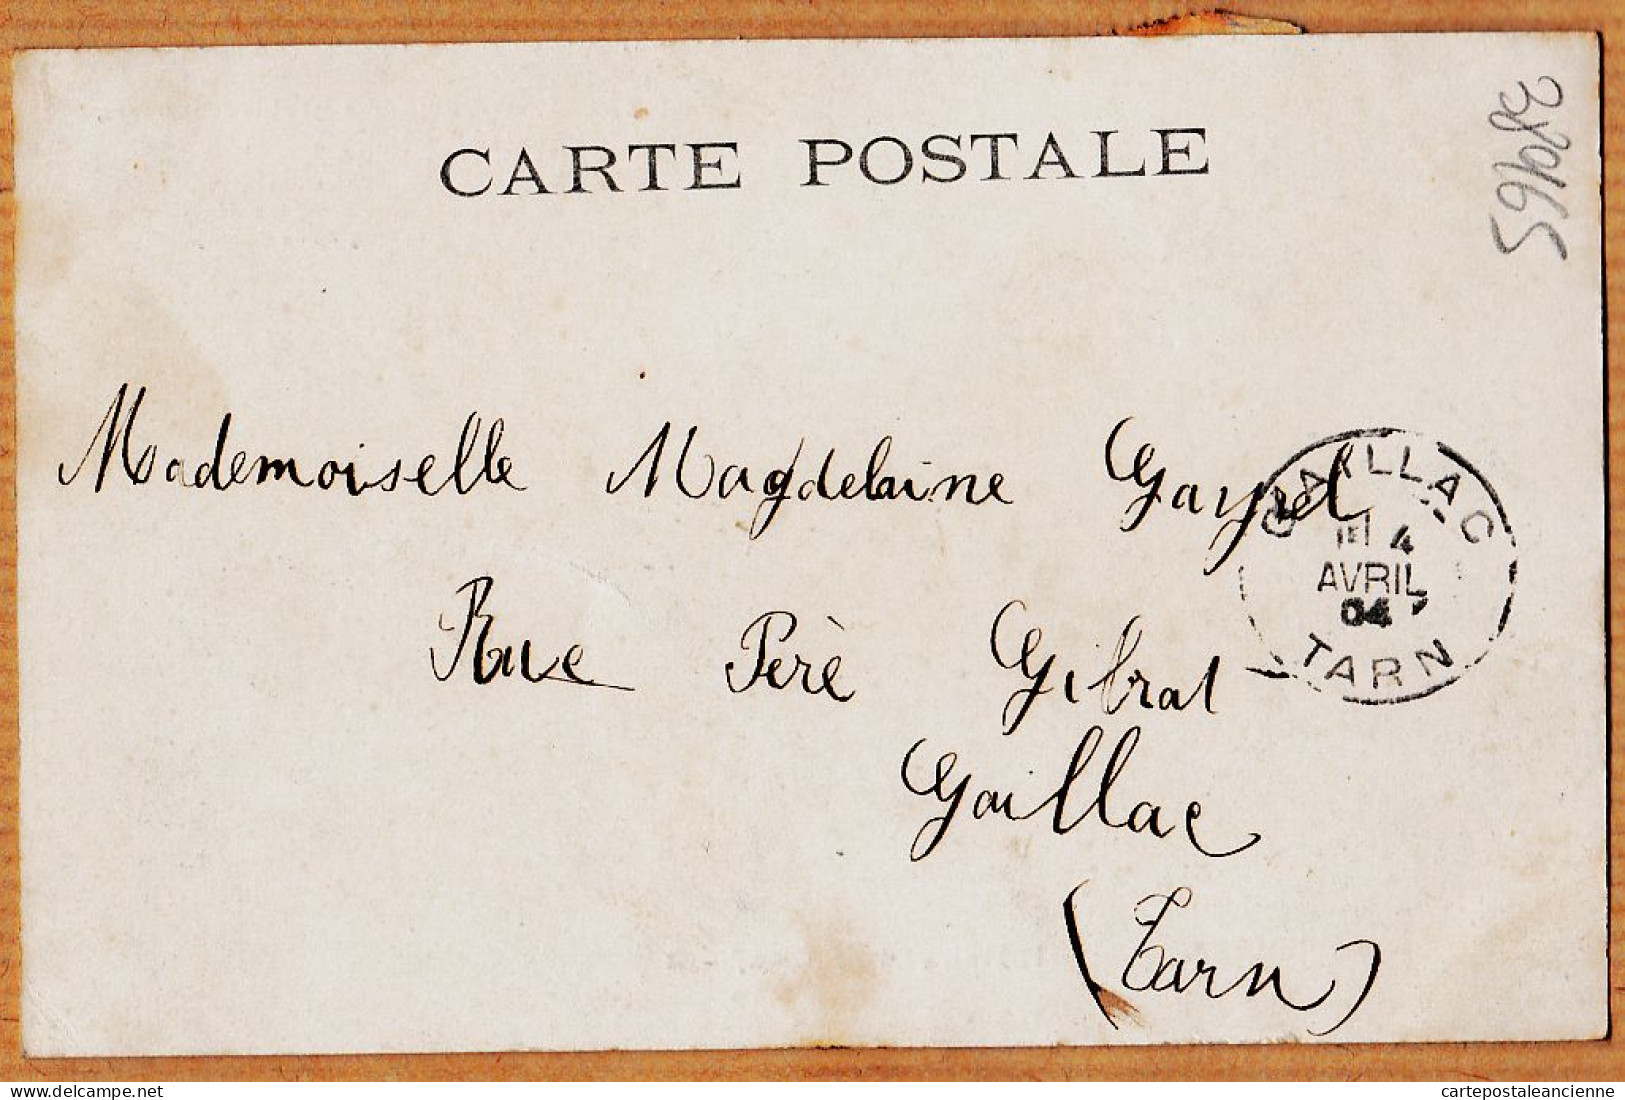 CARTE POSTALE
38965
Mademoiselle Magdelaine Gayrel
Rue Père Gibrat
Gaillac
(Tarn)
GAILLAC
4
AVRIL
04
TARN
cartepostaleancienne